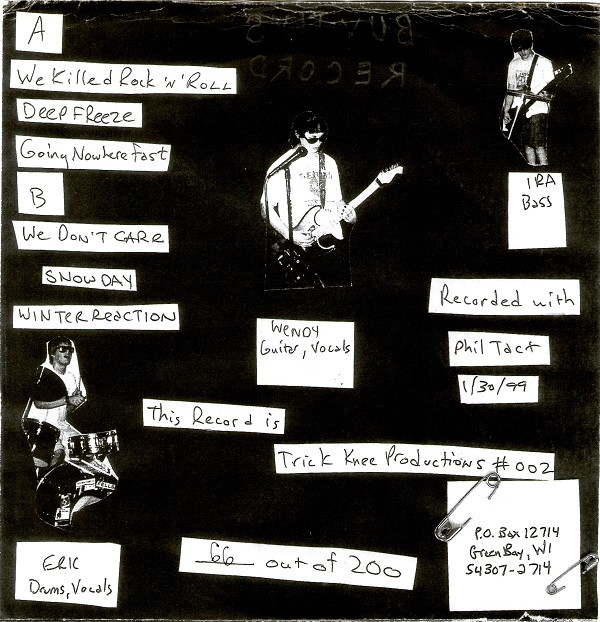 A
We Killed Rock 'n' Roll
Deep Freeze
Going Nowhere Fast
B
We Don't Care
Snow Day
Winter Reaction
Ira
Bass
Wendy
Guitar, Vocals
Recorded with
Phil Tact
1/30/99
This Record is
Trick Knee Productions #002
P.O. Box 12714
Green Bay, WI
54307-2714
Eric
Drums, Vocals
66 out of 200
RECORD